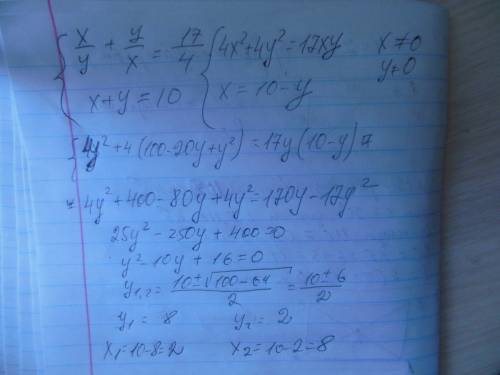 { x/y + y/x = 17/4 { 4x²+4y²=17xy x≠0
x+y=10 x=10-y y≠0
{ 4y²+4(100-20y+y²)=17y(10-y)
4y²+400-80y+4y²=170y-17y²
25y²-250y+400=0
y²-10y+16=0
y₁,₂= 10±√100-64/2 = 10±6/2
y₁= 8 y₂= 2
x₁=10-8=2 x₂=10-2=8